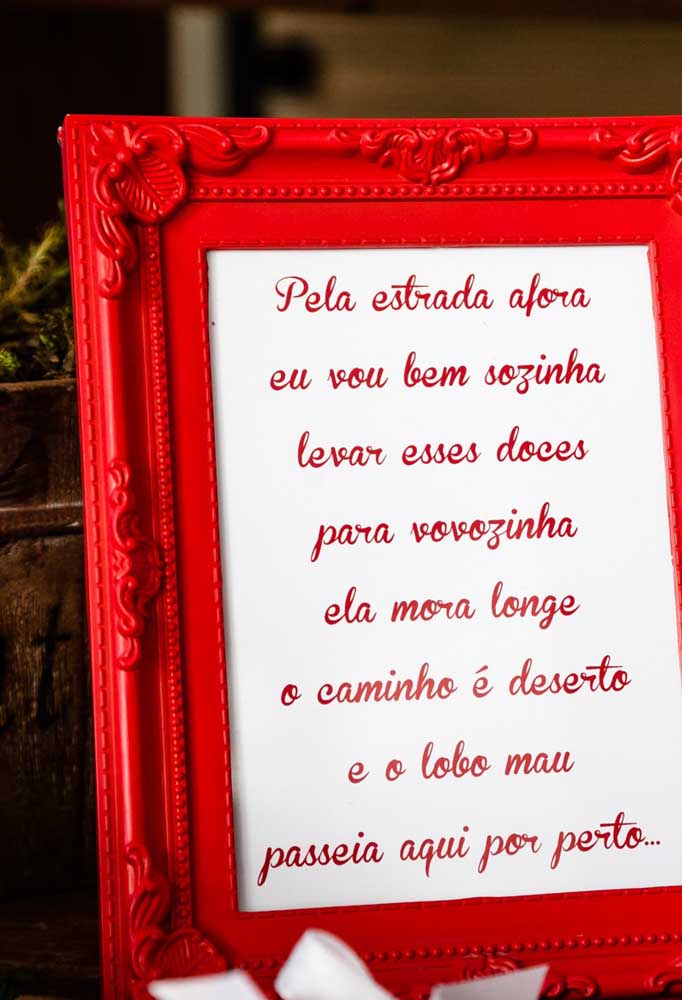 Pela estrada afora
eu vou bem sozinha
levar esses doces
para vovozinha
ela mora longe
o caminho é deserto
e o lobo mau
passeia aqui por perto...